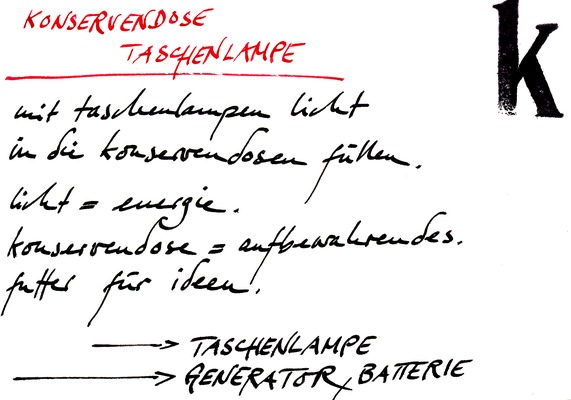 KONSERVENDOSE
TASCHENLAMPE
k
mit taschenlampen licht
in die konservendosen füllen.
licht = energie.
konservendose = aufbewahrendes.
futter für ideen.
→ TASCHENLAMPE
→ GENERATOR, BATTERIE